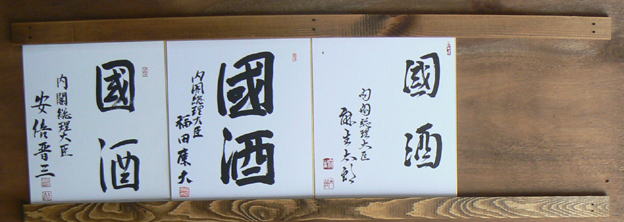 國酒
内閣総理大臣
麻生太郎
國酒
内閣総理大臣
福田康夫
國酒
内閣総理大臣
安倍晋三